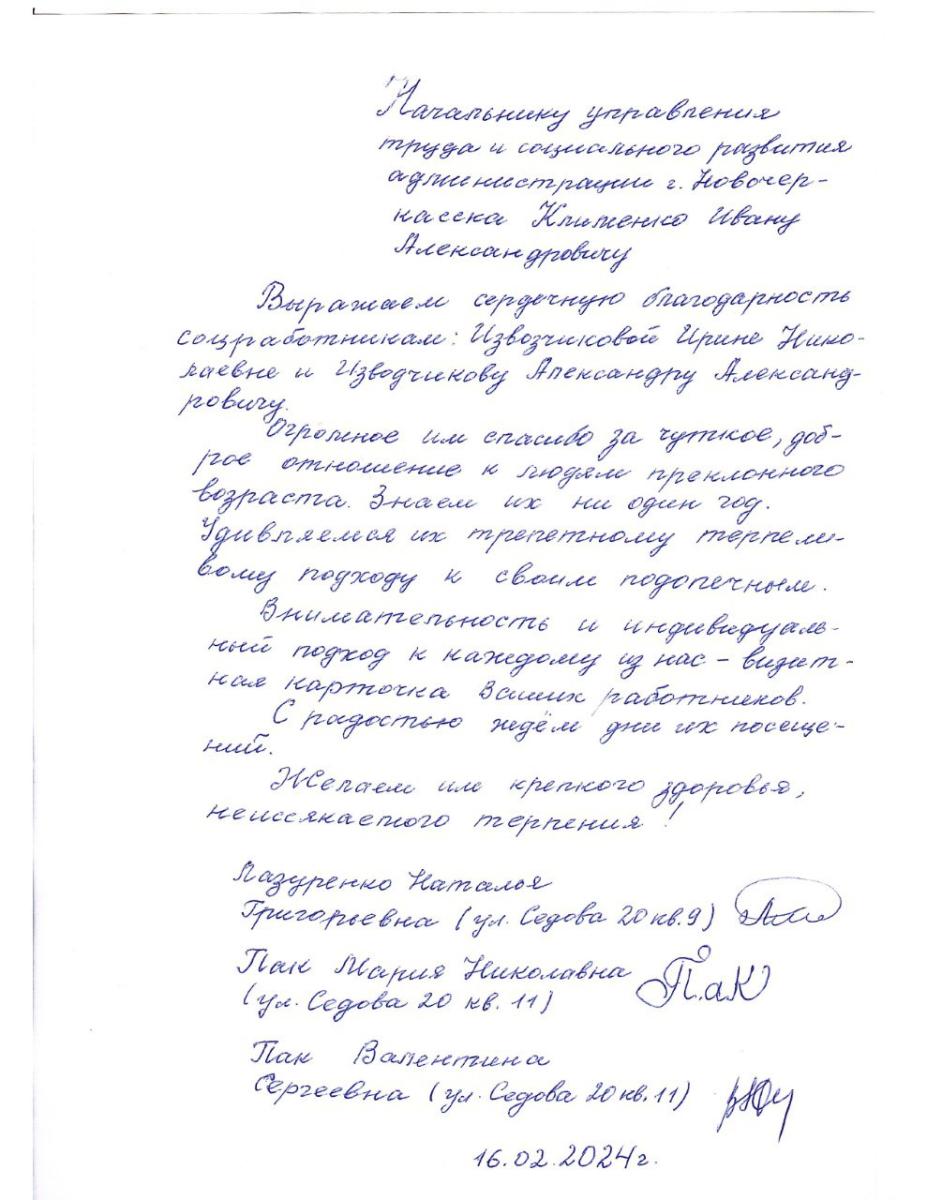 Начальнику управления
труда и социального развития
администрации г. Новочер-
касска Клименко Ивану
Александровичу
Выражаем сердечную благодарность
соцработникам: Извозчиковой Ирине Нико-
лаевне и Изводчикову Александру Александ-
ровичу.
Огромное им спасибо за чуткое, доб-
рое отношение к людям преклонного
возраста. Знаем их ни один год.
Удивляемся их трепетному терпели-
вому подходу к своим подопечным.
Внимательность и индивидуаль-
ный подход к каждому из нас – визит-
ная карточка Ваших работников.
С радостью ждём дни их посеще-
ний.
Желаем им крепкого здоровья,
неиссякаемого терпения!
Лазуренко Наталья
Григорьевна (ул. Седова 20 кв. 9)
Пак Мария Николавна
(ул. Седова 20 кв. 11) Пак
Пак Валентина
Сергеевна (ул. Седова 20 кв. 11)
16.02.2024г.